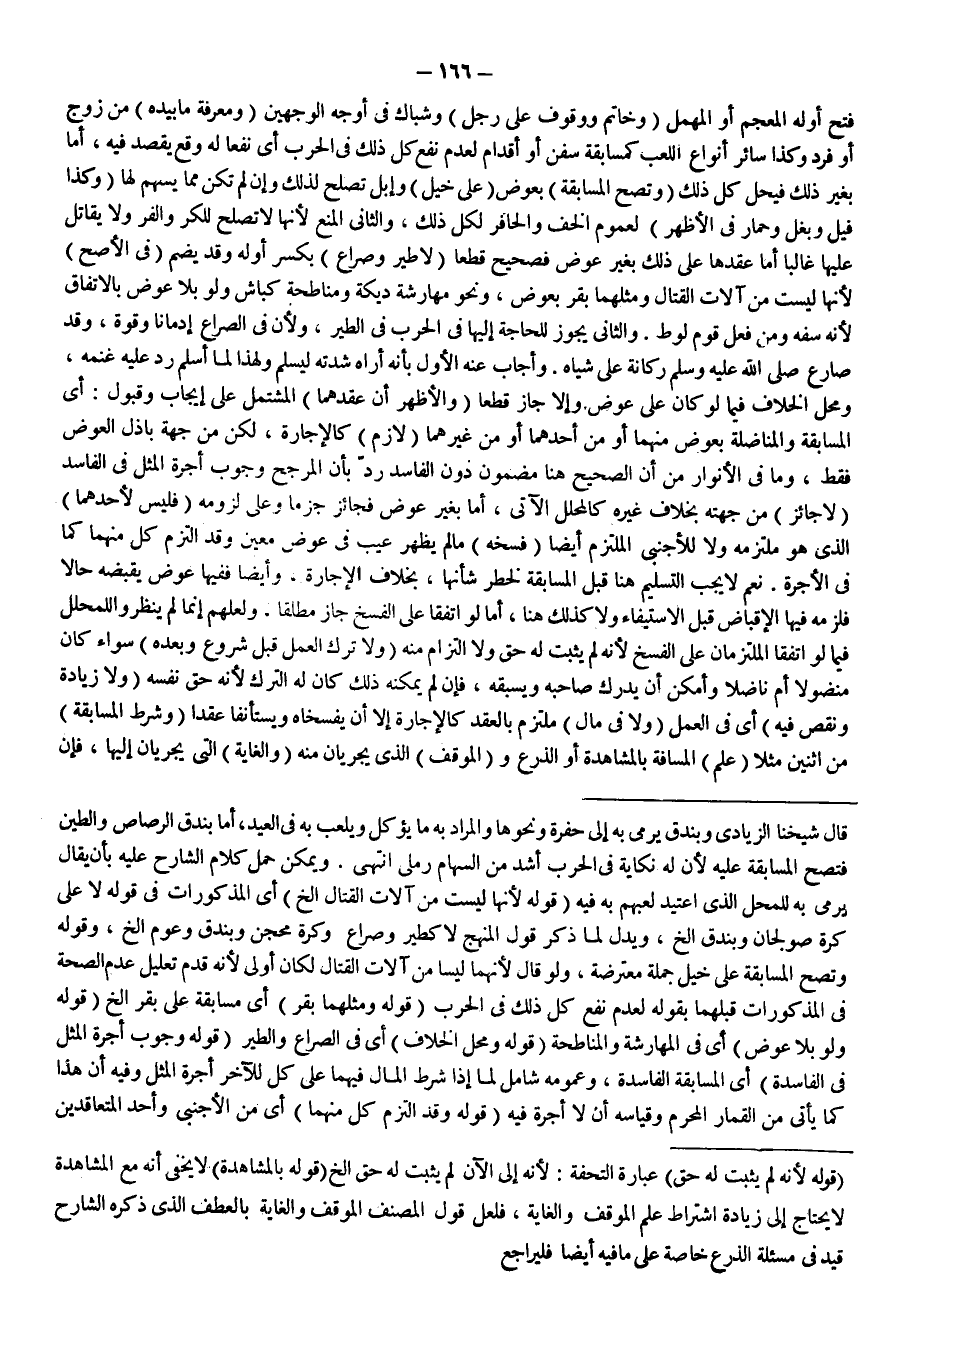 – ١٦٦ –
فتح أوله المعجم أو المهمل ( وخاتم ووقوف على رجل ) وشباك فى أوجه الوجهين ( ومعرفة مابيده ) من زوج
أو فرد وكذا سائر أنواع اللعب كمسابقة سفن أو أقدام لعدم نفع كل ذلك فى الحرب أى نفعا له وقع يقصد فيه ، أما
بغير ذلك فيحل كل ذلك ( وتصح المسابقة ) بعوض ( على خيل ) وإبل تصلح لذلك وإن لم تكن مما يسهم لها ( وكذا
فيل وبغل وحمار فى الأظهر ) لعموم الخف والحافر لكل ذلك ، والثانى المنع لأنها لاتصلح للكر والفر ولا يقاتل
عليها غالبا أما عقدها على ذلك بغير عوض فصحيح قطعا ( لاطير وصراع ) بكسر أوله وقد يضم ( فى الأصح )
لأنها ليست من آلات القتال ومثلهما بقر بعوض ، ونحو مهارشة ديكة ومناطحة كباش ولو بلا عوض بالاتفاق
لأنه سفه ومن فعل قوم لوط . والثانى يجوز للحاجة إليها فى الحرب فى الطير ، ولأن فى الصراع إدمانا وقوة ، وقد
صارع صلى الله عليه وسلم ركانة على شياه . وأجاب عنه الأول بأنه أراه شدته ليسلم ولهذا لما أسلم رد عليه غنمه ،
ومحل الخلاف فيما لو كان على عوض . وإلا جاز قطعا ( والأظهر أن عقدهما ) المشتمل على إيجاب وقبول : أى
المسابقة والمناضلة بعوض منهما أو من أحدهما أو من غيرهما ( لازم ) كالإجارة ، لكن من جهة باذل العوض
فقط ، وما فى الأنوار من أن الصحيح هنا مضمون دون الفاسد ردّ بأن المرجح وجوب أجرة المثل فى الفاسد
( لاجائز ) من جهته بخلاف غيره كالمحلل الآتى ، أما بغير عوض فجائز جزما وعلى لزومه ( فليس لأحدهما )
الذى هو ملتزمه ولا للأجنبى الملتزم أيضا ( فسخه ) مالم يظهر عيب فى عوض معين وقد التزم كل منهما كما
فى الأجرة . نعم لايجب التسليم هنا قبل المسابقة لخطر شأنها ، بخلاف الإجارة . وأيضا ففيها عوض يقبضه حالا
فلزمه فيها الإقباض قبل الاستيفاء ولا كذلك هنا ، أما لو اتفقا على الفسخ جاز مطلقا . ولعلهم إنما لم ينظروا للمحلل
فيما لو اتفقا الملتزمان على الفسخ لأنه لم يثبت له حق ولا التزام منه ( ولا ترك العمل قبل شروع وبعده ) سواء كان
منضولا أم ناضلا وأمكن أن يدرك صاحبه ويسبقه ، فإن لم يمكنه ذلك كان له الترك لأنه حق نفسه ( ولا زيادة
ونقص فيه ) أى فى العمل ( ولا فى مال ) ملتزم بالعقد كالإجارة إلا أن يفسخاه ويستأنفا عقدا ( وشرط المسابقة )
من اثنين مثلا ( علم ) المسافة بالمشاهدة أو الذرع و ( الموقف ) الذى يجريان منه ( والغاية ) التى يجريان إليها ، فإن
قال شيخنا الزيادى وبندق يرمى به إلى حفرة ونحوها والمراد به ما يؤكل ويلعب به فى العيد ، أما بندق الرصاص والطين
فتصح المسابقة عليه لأن له نكاية فى الحرب أشد من السهام رملى انتهى . ويمكن حمل كلام الشارح عليه بأن يقال
يرمى به للمحل الذى اعتيد لعبهم به فيه ( قوله لأنها ليست من آلات القتال الخ ) أى المذكورات فى قوله لا على
كرة صولجان وبندق الخ ، ويدل لما ذكر قول المنهج لا كطير وصراع وكرة محجن وبندق وعوم الخ ، وقوله
وتصح المسابقة على خيل جملة معترضة ، ولو قال لأنهما ليسا من آلات القتال لكان أولى لأنه قدم تعليل عدم الصحة
فى المذكورات قبلهما بقوله لعدم نفع كل ذلك فى الحرب ( قوله ومثلهما بقر ) أى مسابقة على بقر الخ ( قوله
ولو بلا عوض ) أى فى المهارشة والمناطحة ( قوله ومحل الخلاف ) أى فى الصراع والطير ( قوله وجوب أجرة المثل
فى الفاسدة ) أى المسابقة الفاسدة ، وعمومه شامل لما إذا شرط المال فيهما على كل للآخر أجرة المثل وفيه أن هذا
كما يأتى من القمار المحرم وقياسه أن لا أجرة فيه ( قوله وقد التزم كل منهما ) أى من الأجنبى وأحد المتعاقدين
( قوله لأنه لم يثبت له حق ) عبارة التحفة : لأنه إلى الآن لم يثبت له حق الخ ( قوله بالمشاهدة ) لايخفى أنه مع المشاهدة
لايحتاج إلى زيادة اشتراط علم الموقف والغاية ، فلعل قول المصنف الموقف والغاية بالعطف الذى ذكره الشارح
قيد فى مسئلة الذرع خاصة على مافيه أيضا فليراجع